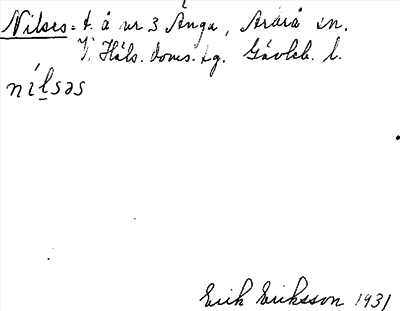 Nilses = t. å nr 3 Ånga, Årdrå sn.
V. Häls. doms. tg. Gävleb. l.
nílsəs
Erik Eriksson 1931